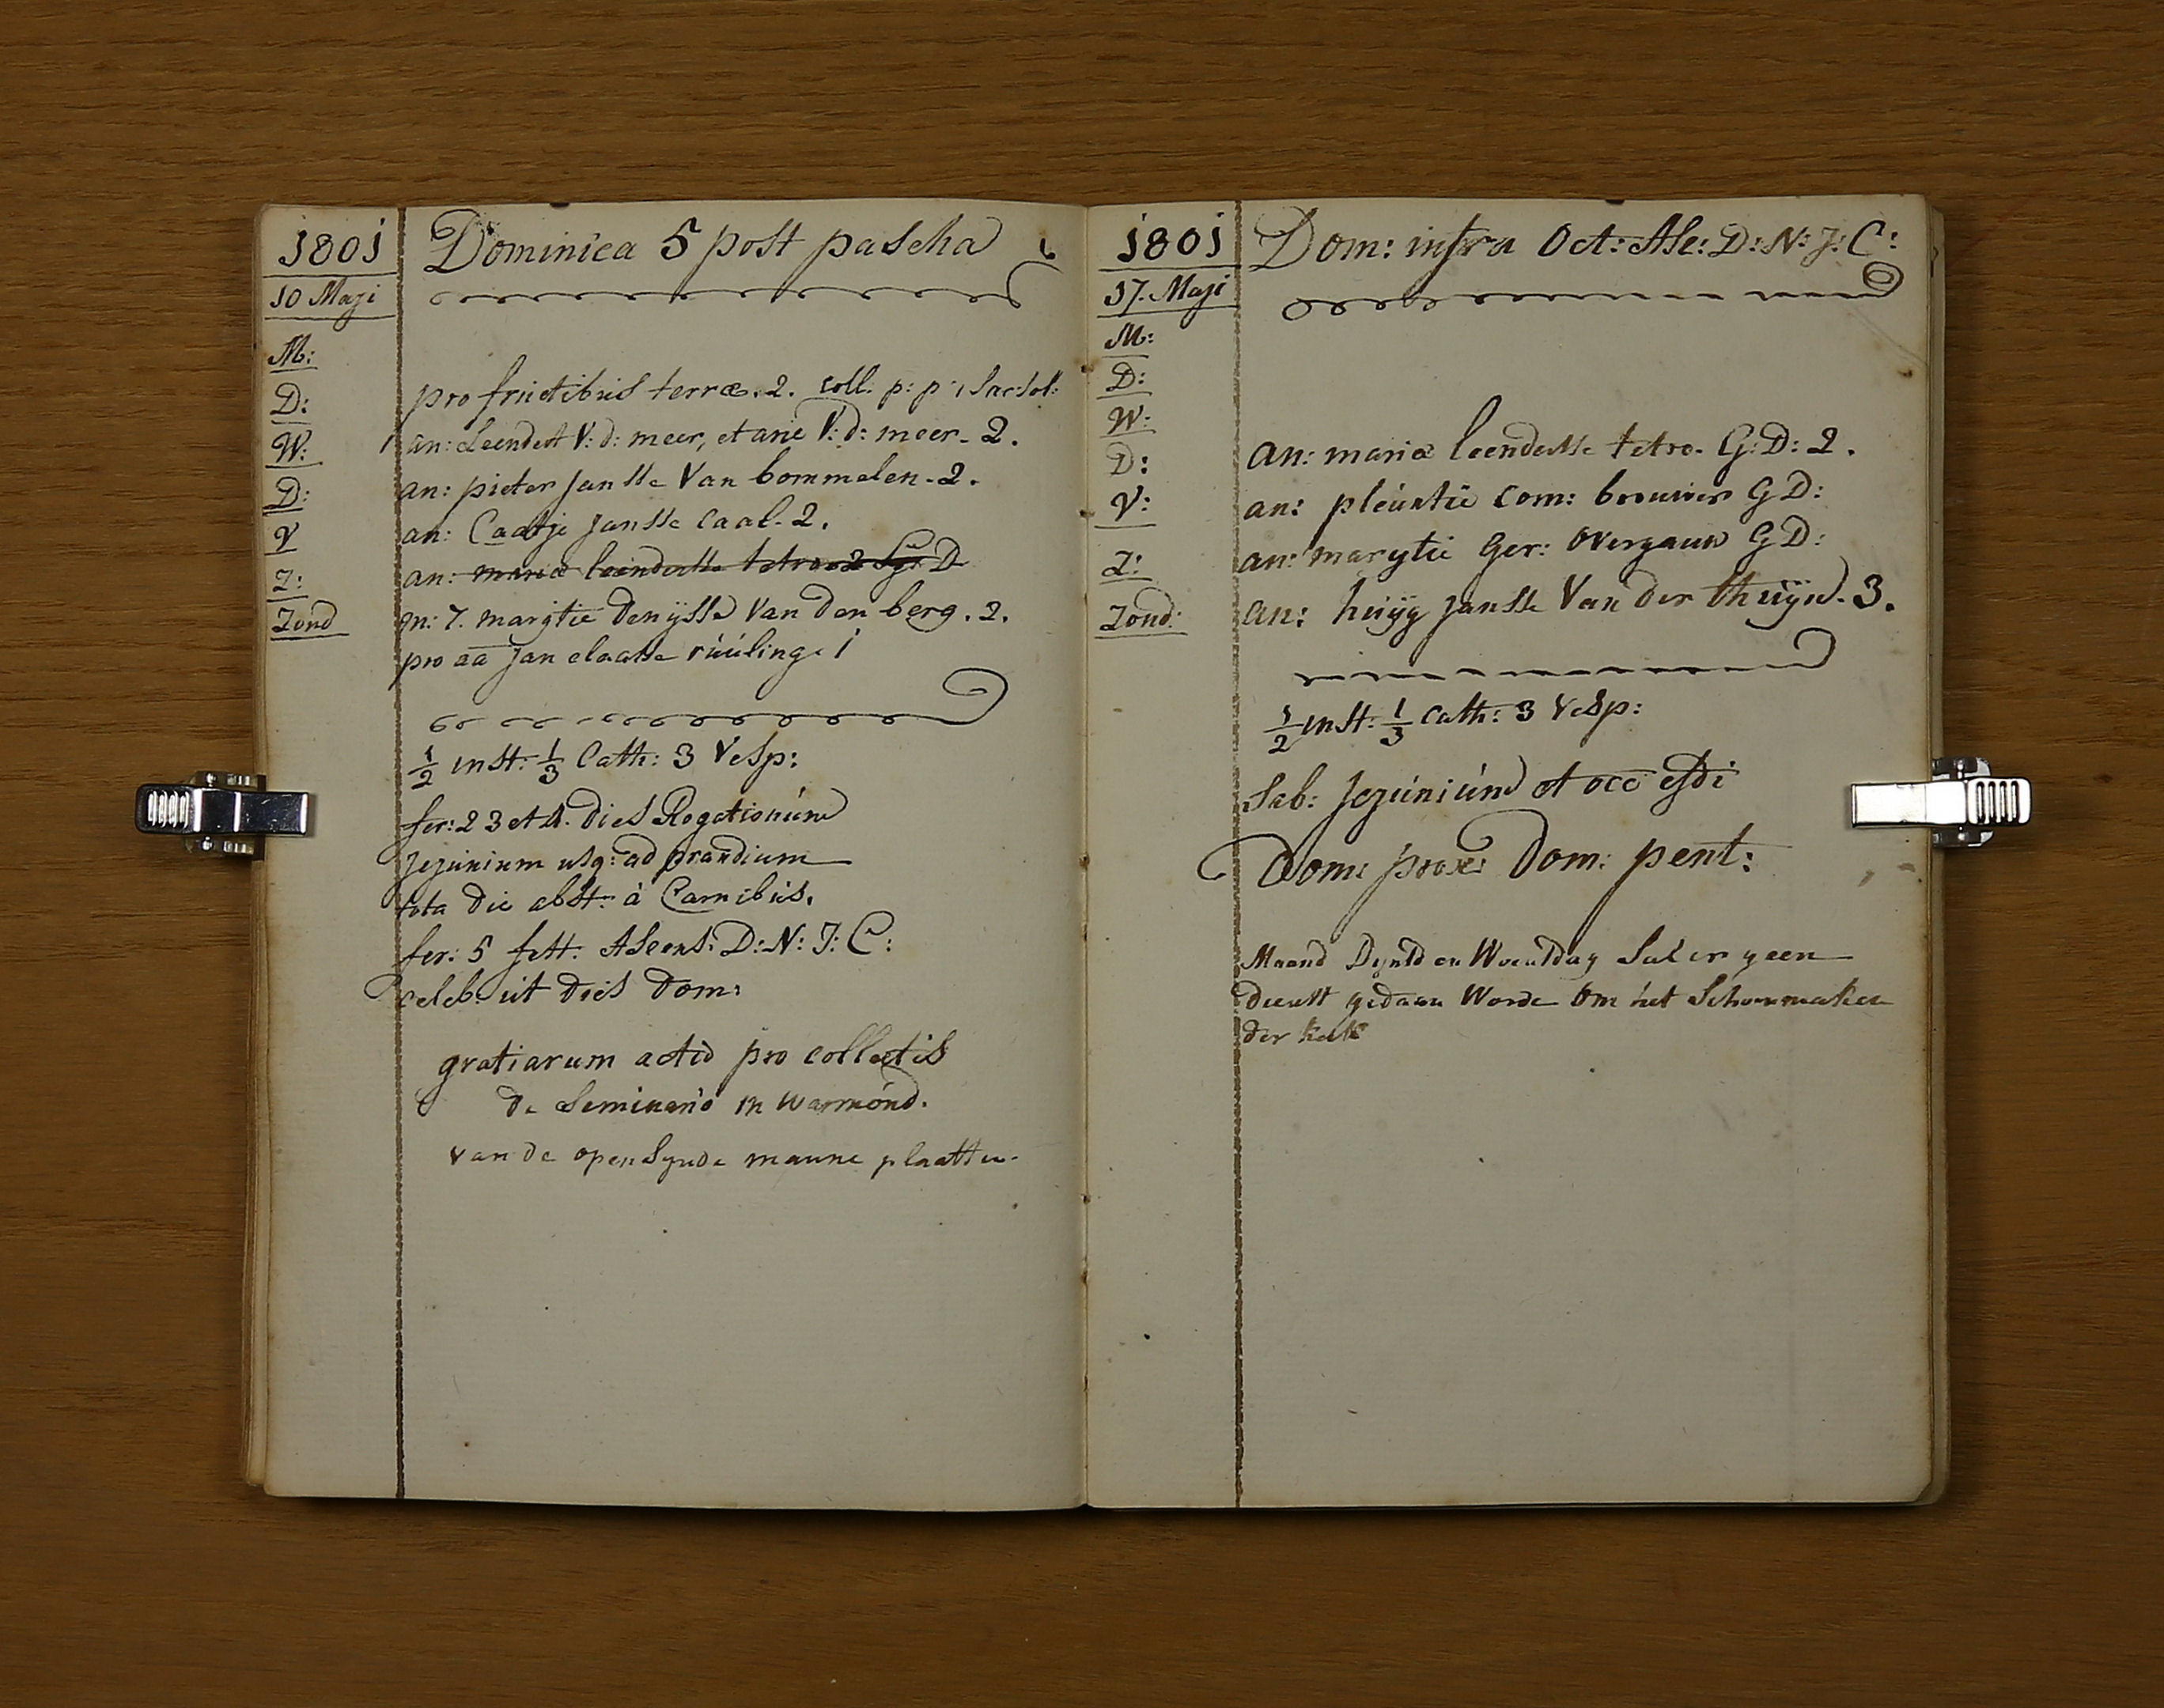 1801
10 Maji
Dominica 5 post pascha
M:
D: pro fructibus terræ. 2. coll. p: p:
W: an: Leendert V: d: meer, et arie V: d: meer - 2.
D: an: pieter Jansse Van bommelen - 2.
V an: Caatje Jansse Caal - 2.
Z: an: maria leendertse tetroo 2 G: D
Zond m: 7. marijtie denijsse Van den berg. 2.
pro aa Jan claasse
1/2 inst: 1/3 Cath: 3 Vesp:
fer: 2 3 et 4. dies Rogationum
Jejunium usq: ad prandium
tota die abst: à Carnibus.
fer: 5 fest: Ascens: D: N: J: C:
celeb: ut dies dom:
gratiarum actio pro collectis
de Seminario in warmond.
van de
1801
17. Maji
Dom: infra Oct: Asc: D: N: J: C:
M:
D:
W: an: maria leendertse tetro - G: D: 2.
D: an: pleuntie Corn: brouwer G D:
V: an: marytie Ger: Overgauw G D:
Z: an: huijg Jansse Van der thuijn - 3.
Zond:
1/2 inst: 1/3 Cath: 3 Vesp:
Sab: Jejunium et occ
Dom: prox: Dom: pent:
Maand Dynsd en Woensdag Sal er geen
dienst gedaan Worde Om het Schoonmaken
der kerk